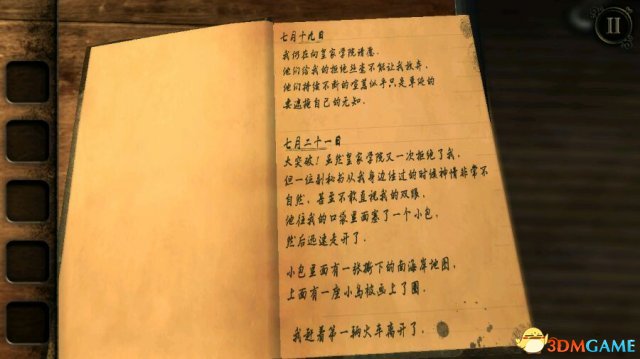 七月十九日
我仍在向皇家学院请愿.
他们给我的拒绝丝毫不能让我放弃.
他们持续不断的喧嚣似乎只是单纯的
要遮掩自己的无知.
七月二十一日
大突破! 虽然皇家学院又一次拒绝了我,
但一位副秘书从我身边经过的时候神情非常不
自然, 甚至不敢直视我的双眼.
他往我的口袋里面塞了一个小包,
然后迅速走开了.
小包里面有一张撕下的南海岸地图,
上面有一座小岛被画上了圈.
我赶着第一辆火车离开了.
3DMGAME